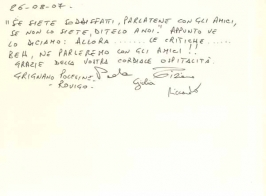 26-08-07.
"SE SIETE SODDISFATTI, PARLATENE CON GLI AMICI,
SE NON LO SIETE, DITELO A NOI." APPUNTO VE
LO DICIAMO: ALLORA ....... LE CRITICHE .....
BEH, NE PARLEREMO CON GLI AMICI!!
GRAZIE DELLA VOSTRA CORDIALE OSPITALITÀ.
GRIGNANO POLESINE Paola
- ROVIGO - Giulia
Riccardo